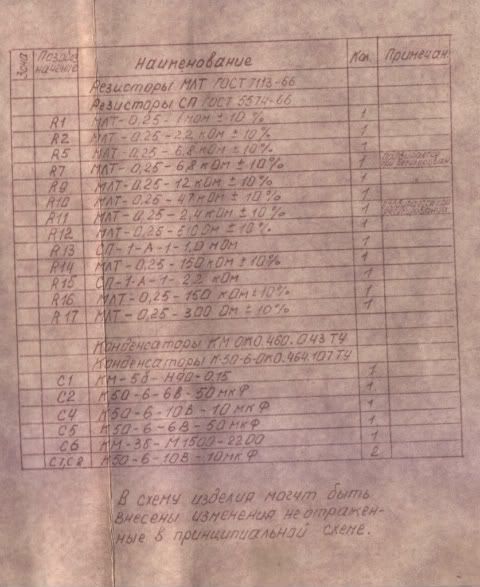 Зона Позобо- значение Наименование Кол Примечан.
Резисторы МЛТ ГОСТ 7113-66
Резисторы СП ГОСТ 5574-66
R1 МЛТ-0,25-1мом ±10% 1
R2 МЛТ-0,25-2,2 кОм ±10% 1
R5 МЛТ-0,25-6,8 кОм ±10% 1
R7 МЛТ-0,25-6,8 кОм ±10% 1
R9 МЛТ-0,25-12 кОм ±10% 1
R10 МЛТ-0,25-47 кОм ±10% 1
R11 МЛТ-0,25-2,4 кОм ±10% 1
R12 МЛТ-0,25-510 Ом ±10% 1
R13 СП-1-А-1-1,0 мОм 1
R14 МЛТ-0,25-150 кОм ±10% 1
R15 СП-1-А-1-22 кОм 1
R16 МЛТ-0,25-150 кОм ±10% 1
R17 МЛТ-0,25-300 Ом ±10% 1
Конденсаторы КМ ОКО.460.043 ТУ
Конденсаторы К-50-6-ОКО.464.107 ТУ
C1 КМ-5б-Н90-0,15 1
C2 К50-6-6В-50 мкФ 1
C4 К50-6-10В-10 мкФ 1
C5 К50-6-6В-50 мкФ 1
C6 КМ-3Б-М1500-2200 1
C7,C8 К50-6-10В-10 мкФ 2
В схему изделия могут быть
внесены изменения не отражен-
ные в принципиальной схеме.